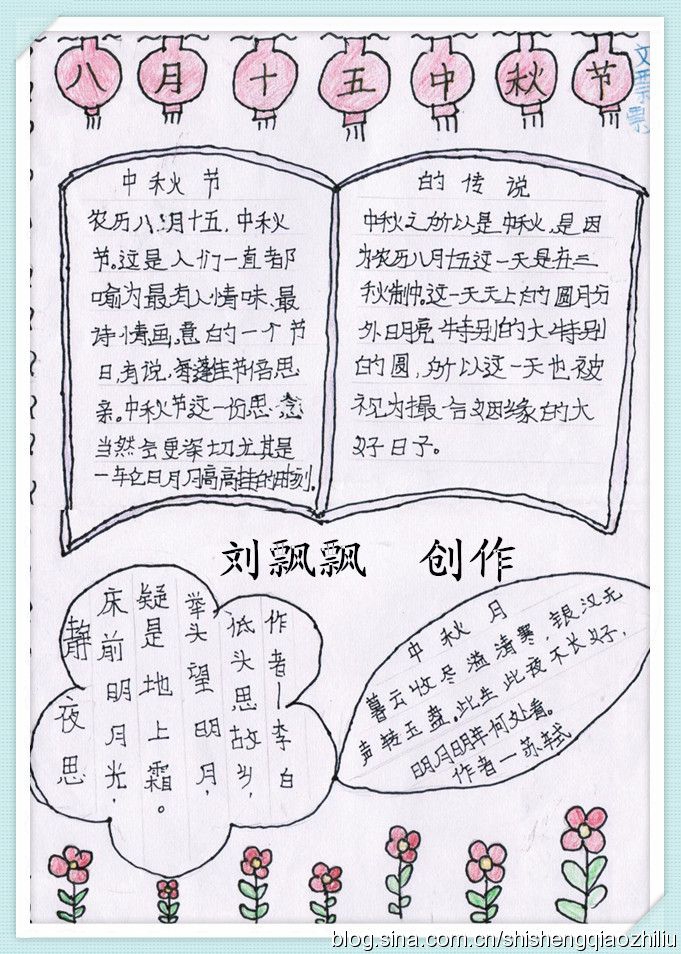 八月十五中秋节
中秋节
农历八月十五,中秋
节。这是人们一直都
喻为最有人情味、最
诗情画意的一个节
日,有说,每逢佳节倍思
亲。中秋节这一份思念
当然会更深切尤其是
高高挂的时刻。
的传说
中秋之所以是中秋,是因
为农历八月十五这一天是在三
秋制中。这一天天上的圆月分
外明亮特别的大特别
的圆,所以这一天也被
视为撮合姻缘的大
好日子。
刘飘飘 创作
静夜思
床前明月光,
疑是地上霜。
举头望明月,
低头思故乡,
作者—李白
中秋月
暮云收尽溢清寒,银汉无
声转玉盘。此生此夜不长好,
明月明年何处看。
作者—苏轼
blog.sina.com.cn/shishengqiaozhiliu